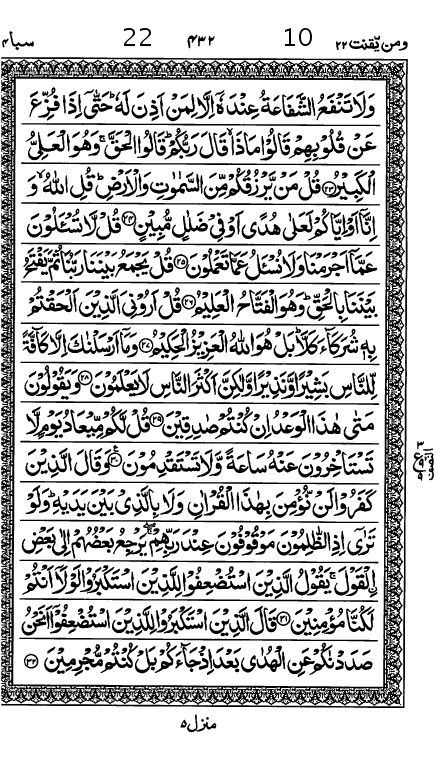 ومن يّقنت ٢٢ 10 ٤٣٢ 22 سبا ٣٤
وَلَا تَنْفَعُ الشَّفَاعَةُ عِنْدَهٗۤ اِلَّا لِمَنْ اَذِنَ لَهٗ ؕ حَتّٰۤى اِذَا فُزِّعَ
عَنْ قُلُوْبِهِمْ قَالُوْا مَاذَا ۙ قَالَ رَبُّكُمْ ؕ قَالُوا الْحَقَّ ۚ وَهُوَ الْعَلِىُّ
الْكَبِيْرُ ﴿۲۳﴾ قُلْ مَنْ يَّرْزُقُكُمْ مِّنَ السَّمٰوٰتِ وَالْاَرْضِ ؕ قُلِ اللّٰهُ ۙ وَ
اِنَّاۤ اَوْ اِيَّاكُمْ لَعَلٰى هُدًى اَوْ فِىْ ضَلٰلٍ مُّبِيْنٍ ﴿۲۴﴾ قُلْ لَّا تُسْـَٔلُوْنَ
عَمَّاۤ اَجْرَمْنَا وَلَا نُسْـَٔلُ عَمَّا تَعْمَلُوْنَ ﴿۲۵﴾ قُلْ يَجْمَعُ بَيْنَنَا رَبُّنَا ثُمَّ يَفْتَحُ
بَيْنَنَا بِالْحَقِّ ؕ وَهُوَ الْفَتَّاحُ الْعَلِيْمُ ﴿۲۶﴾ قُلْ اَرُوْنِىَ الَّذِيْنَ اَلْحَقْتُمْ
بِهٖ شُرَكَآءَ كَلَّا ؕ بَلْ هُوَ اللّٰهُ الْعَزِيْزُ الْحَكِيْمُ ﴿۲۷﴾ وَمَاۤ اَرْسَلْنٰكَ اِلَّا كَآفَّةً
لِّلنَّاسِ بَشِيْرًا وَّنَذِيْرًا وَّلٰكِنَّ اَكْثَرَ النَّاسِ لَا يَعْلَمُوْنَ ﴿۲۸﴾ وَيَقُوْلُوْنَ
مَتٰى هٰذَا الْوَعْدُ اِنْ كُنْتُمْ صٰدِقِيْنَ ﴿۲۹﴾ قُلْ لَّكُمْ مِّيْعَادُ يَوْمٍ لَّا
تَسْتَاْخِرُوْنَ عَنْهُ سَاعَةً وَّلَا تَسْتَقْدِمُوْنَ ﴿۳۰﴾ وَقَالَ الَّذِيْنَ
كَفَرُوْا لَنْ نُّؤْمِنَ بِهٰذَا الْقُرْاٰنِ وَلَا بِالَّذِىْ بَيْنَ يَدَيْهِ ؕ وَلَوْ
تَرٰٓى اِذِ الظّٰلِمُوْنَ مَوْقُوْفُوْنَ عِنْدَ رَبِّهِمْ ۖۚ يَرْجِعُ بَعْضُهُمْ اِلٰى بَعْضِ
اۨلْقَوْلَ ۚ يَقُوْلُ الَّذِيْنَ اسْتُضْعِفُوْا لِلَّذِيْنَ اسْتَكْبَرُوْا لَوْلَاۤ اَنْتُمْ
لَكُنَّا مُؤْمِنِيْنَ ﴿۳۱﴾ قَالَ الَّذِيْنَ اسْتَكْبَرُوْا لِلَّذِيْنَ اسْتُضْعِفُوْۤا اَنَحْنُ
صَدَدْنٰكُمْ عَنِ الْهُدٰى بَعْدَ اِذْ جَآءَكُمْ بَلْ كُنْتُمْ مُّجْرِمِيْنَ ﴿۳۲﴾
منزل ٥